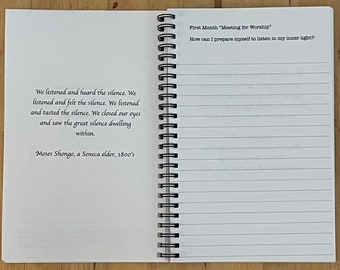 We listened and heard the silence. We
listened and felt the silence. We listened
and tasted the silence. We closed our eyes
and saw the great silence dwelling
within.
Moses Shongo, a Seneca elder, 1800's
First Month "Meeting for Worship"
How can I prepare myself to listen to my inner light?